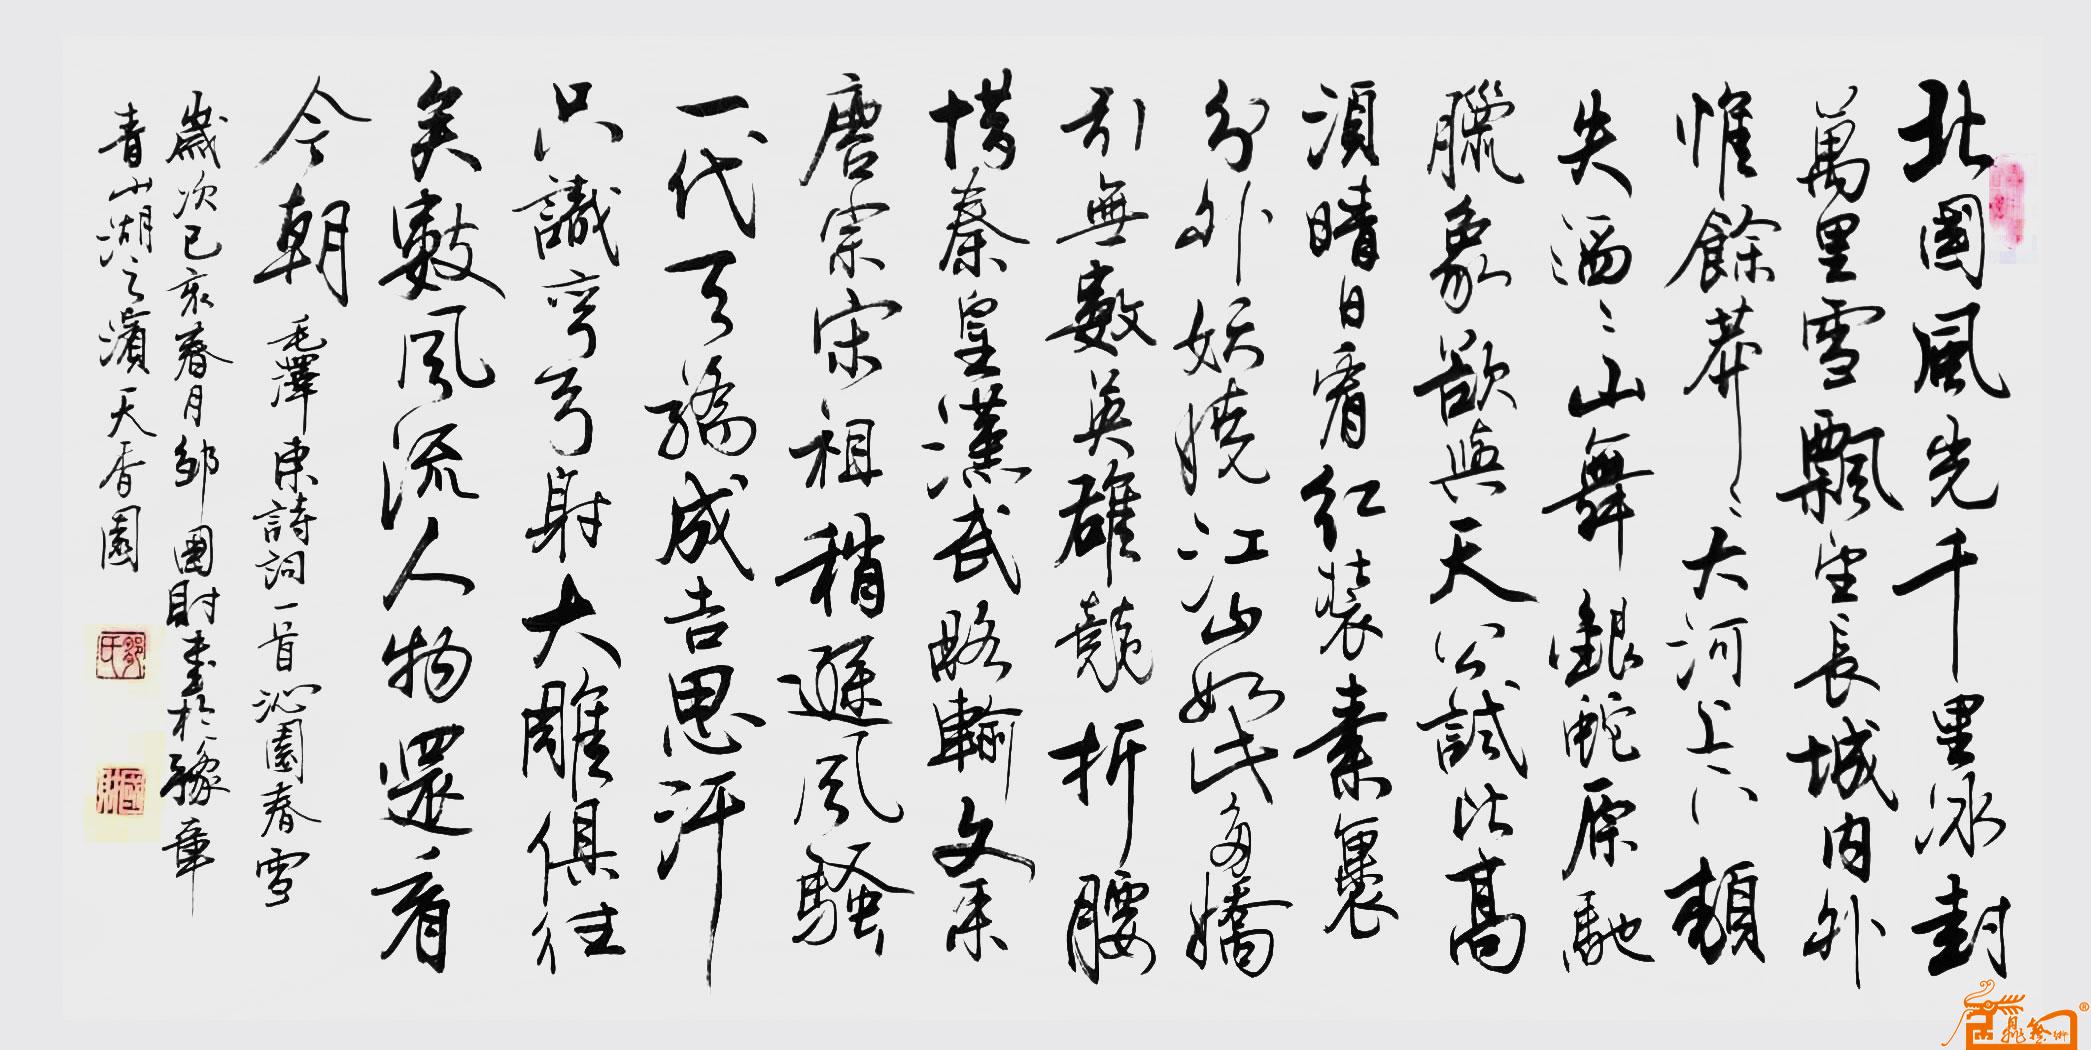 北國風光千里冰封
萬里雪飄望長城内外
惟餘莽〻大河上下頓
失滔〻山舞銀蛇原馳
臘象欲與天公試比高
須晴日看紅裝素裹
分外妖嬈江山如此多嬌
引無數英雄競折腰
惜秦皇漢武略輸文采
唐宗宋祖稍遜風騷
一代天驕成吉思汗
只識彎弓射大雕俱往
矣數風流人物還看
今朝 毛澤東詩詞一首沁園春雪
歲次己亥春月鄒國財書於豫章
青山湖之濱天香園
鄒氏
國財